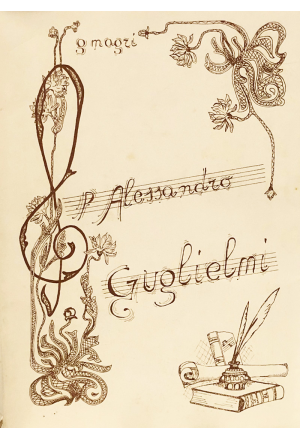 g magri
P Alessandro
Guglielmi